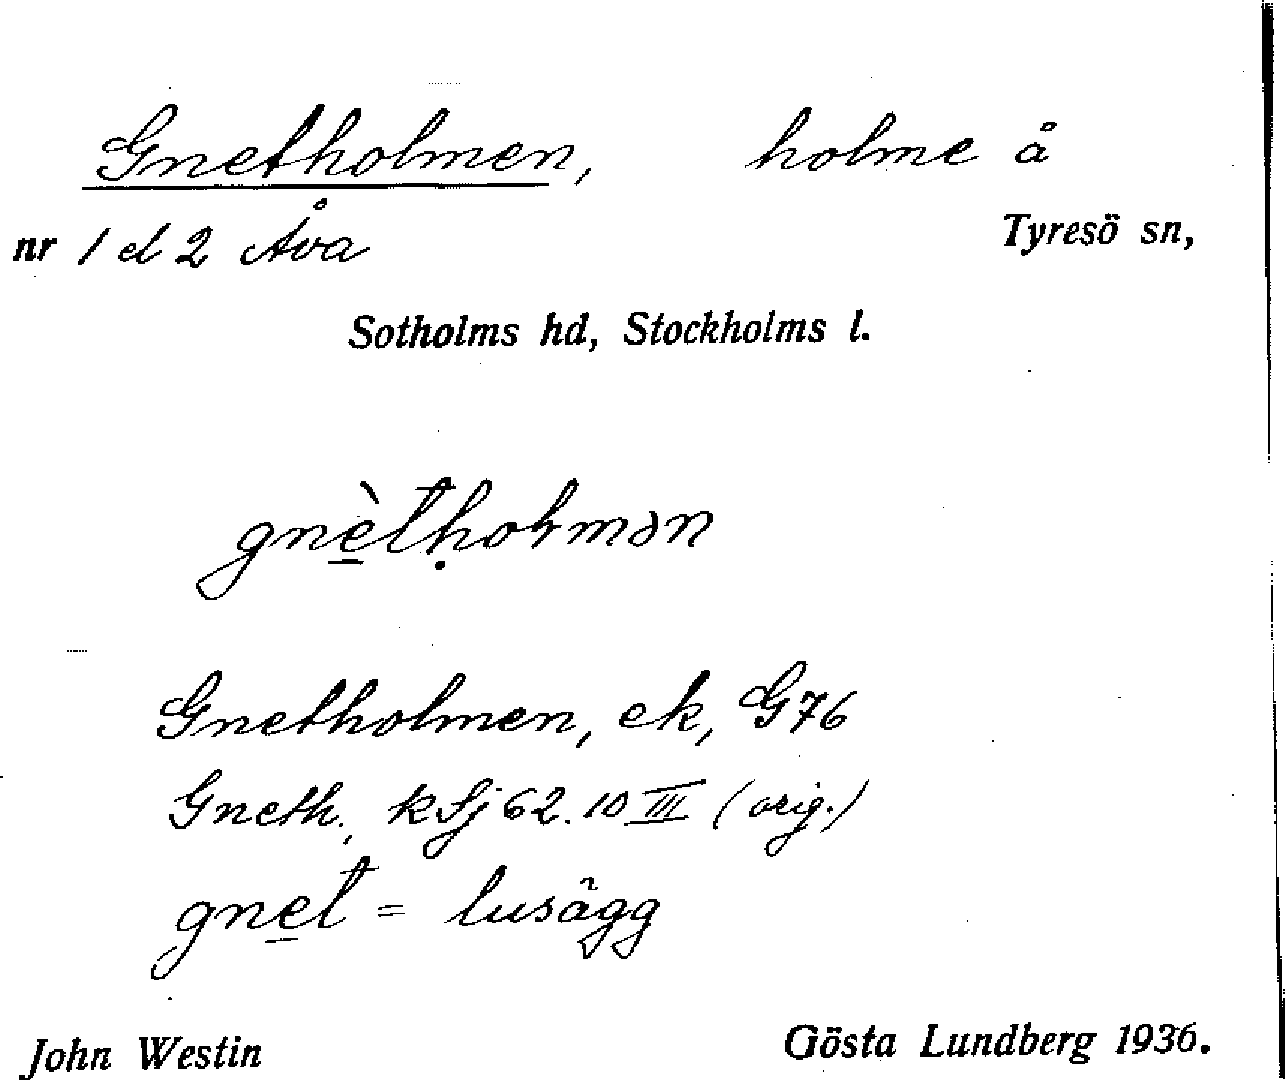 Gnetholmen, holme å
nr 1 d 2 Åva Tyresö sn,
Sotholms hd, Stockholms l.
gnètḥoɫmən
Gnetholmen, ek, G76
Gneth., k Sj 62.10 III (orig.)
gne̲t = lusägg
John Westin Gösta Lundberg 1936.